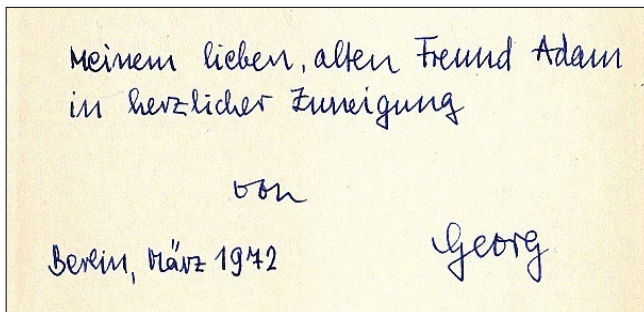 Meinem lieben, alten Freund Adam
in herzlicher Zuneigung
von
Georg
Berlin, März 1972